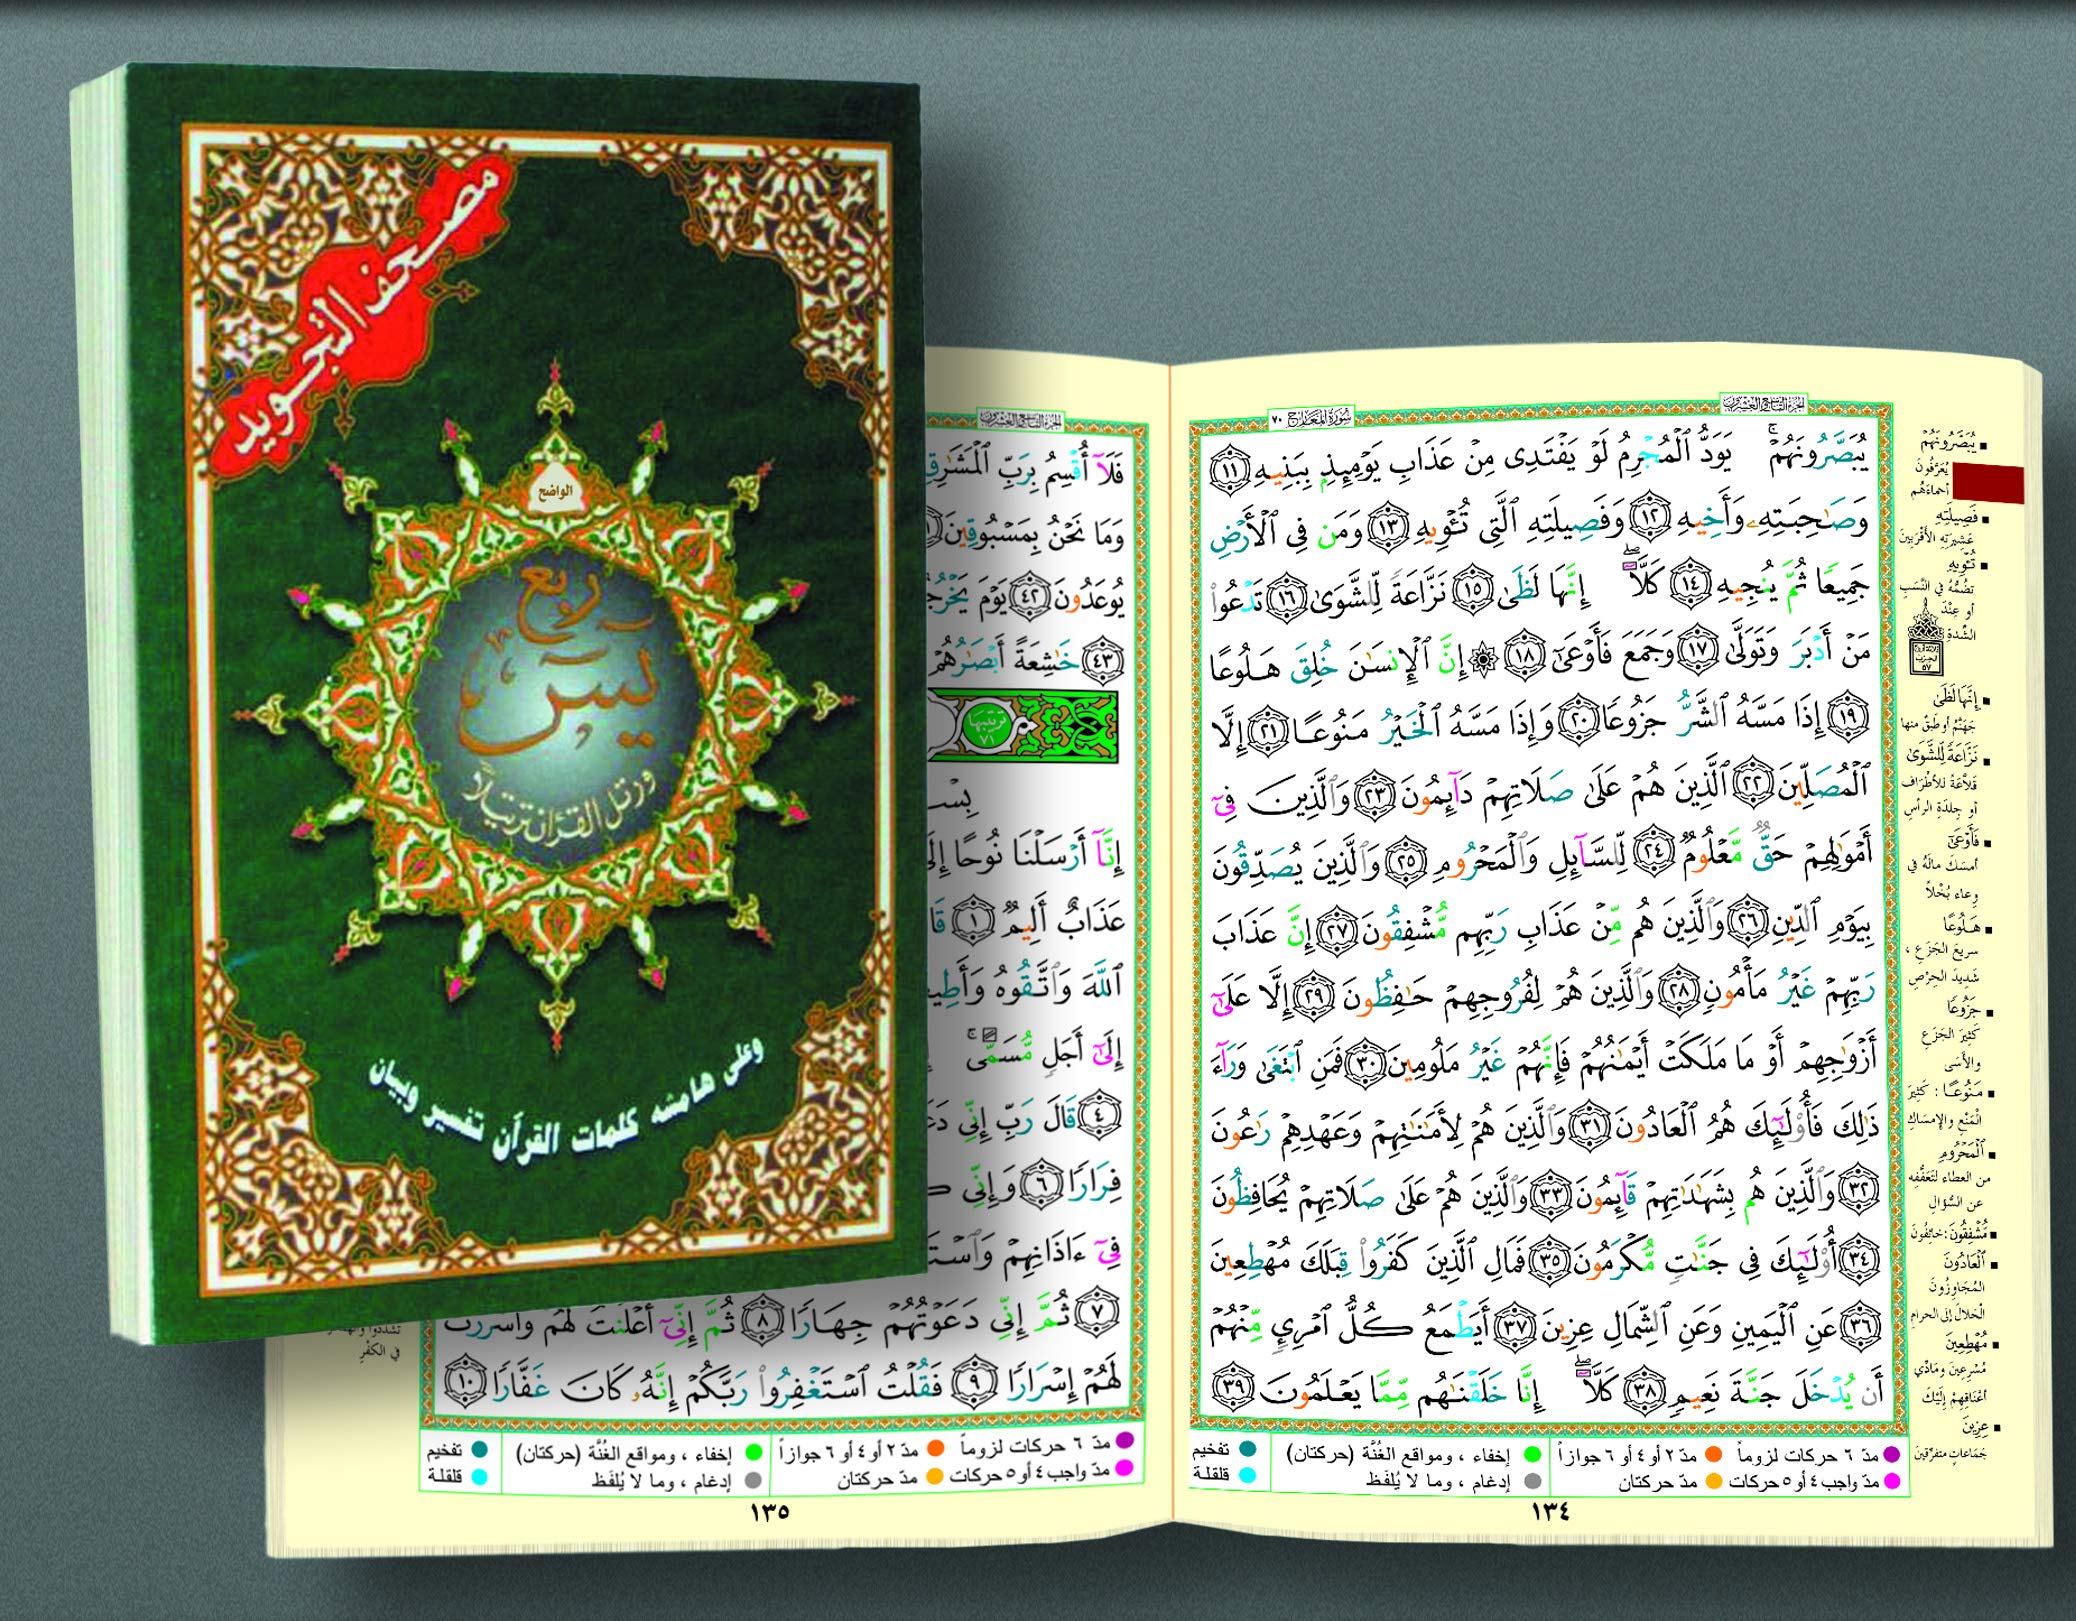 مصحف التجويد
الواضح
ربع
يسٓ
ورتل القرآن ترتيلاً
وعلى هامشه كلمات القرآن تفسير وبيان
سُورَةُ المَعَارِج ٧٠
الجزء التاسع والعشرون
يُبَصَّرُونَهُمْ ۚ يَوَدُّ ٱلْمُجْرِمُ لَوْ يَفْتَدِى مِنْ عَذَابِ يَوْمِئِذٍۭ بِبَنِيهِ ١١
وَصَـٰحِبَتِهِۦ وَأَخِيهِ ١٢ وَفَصِيلَتِهِ ٱلَّتِى تُـْٔوِيهِ ١٣ وَمَن فِى ٱلْأَرْضِ
جَمِيعًا ثُمَّ يُنجِيهِ ١٤ كَلَّآ ۖ إِنَّهَا لَظَىٰ ١٥ نَزَّاعَةً لِّلشَّوَىٰ ١٦ تَدْعُوا۟
مَنْ أَدْبَرَ وَتَوَلَّىٰ ١٧ وَجَمَعَ فَأَوْعَىٰٓ ١٨ ۞ إِنَّ ٱلْإِنسَـٰنَ خُلِقَ هَلُوعًا
١٩ إِذَا مَسَّهُ ٱلشَّرُّ جَزُوعًا ٢٠ وَإِذَا مَسَّهُ ٱلْخَيْرُ مَنُوعًا ٢١ إِلَّا
ٱلْمُصَلِّينَ ٢٢ ٱلَّذِينَ هُمْ عَلَىٰ صَلَاتِهِمْ دَآئِمُونَ ٢٣ وَٱلَّذِينَ فِىٓ
أَمْوَٰلِهِمْ حَقٌّ مَّعْلُومٌ ٢٤ لِّلسَّآئِلِ وَٱلْمَحْرُومِ ٢٥ وَٱلَّذِينَ يُصَدِّقُونَ
بِيَوْمِ ٱلدِّينِ ٢٦ وَٱلَّذِينَ هُم مِّنْ عَذَابِ رَبِّهِم مُّشْفِقُونَ ٢٧ إِنَّ عَذَابَ
رَبِّهِمْ غَيْرُ مَأْمُونٍ ٢٨ وَٱلَّذِينَ هُمْ لِفُرُوجِهِمْ حَـٰفِظُونَ ٢٩ إِلَّا عَلَىٰٓ
أَزْوَٰجِهِمْ أَوْ مَا مَلَكَتْ أَيْمَـٰنُهُمْ فَإِنَّهُمْ غَيْرُ مَلُومِينَ ٣٠ فَمَنِ ٱبْتَغَىٰ وَرَآءَ
ذَٰلِكَ فَأُو۟لَـٰٓئِكَ هُمُ ٱلْعَادُونَ ٣١ وَٱلَّذِينَ هُمْ لِأَمَـٰنَـٰتِهِمْ وَعَهْدِهِمْ رَٰعُونَ
٣٢ وَٱلَّذِينَ هُم بِشَهَـٰدَٰتِهِمْ قَآئِمُونَ ٣٣ وَٱلَّذِينَ هُمْ عَلَىٰ صَلَاتِهِمْ يُحَافِظُونَ
٣٤ أُو۟لَـٰٓئِكَ فِى جَنَّـٰتٍ مُّكْرَمُونَ ٣٥ فَمَالِ ٱلَّذِينَ كَفَرُوا۟ قِبَلَكَ مُهْطِعِينَ
٣٦ عَنِ ٱلْيَمِينِ وَعَنِ ٱلشِّمَالِ عِزِينَ ٣٧ أَيَطْمَعُ كُلُّ ٱمْرِئٍ مِّنْهُمْ
أَن يُدْخَلَ جَنَّةَ نَعِيمٍ ٣٨ كَلَّآ ۖ إِنَّا خَلَقْنَـٰهُم مِّمَّا يَعْلَمُونَ ٣٩
▪ يُبَصَّرُونَهُمْ
يُعَرَّفُونَ
أحماءَهُم
▪ فَصِيلَتِهِ
عَشيرَتِهِ الأَقْرَبينَ
▪ تُـْٔوِيهِ
تَضُمُّهُ في النَّسَبِ
أو عِنْدَ
الشِّدةِ
▪ إِنَّهَا لَظَىٰ
جَهَنَّمُ أو طَبَقٌ منها
▪ نَزَّاعَةً لِّلشَّوَىٰ
قَلاَّعَةً للأَطْرَاف
أو جِلدَةِ الرأسِ
▪ فَأَوْعَىٰٓ
أمسَكَ مالَهُ في
وِعاء بُخْلاً
▪ هَلُوعًا
سريعَ الجَزَعِ ،
شديدَ الحِرْصِ
▪ جَزُوعًا
كَثِيرَ الجَزَعِ
والأَسَى
▪ مَنُوعًا : كَثيرَ
المَنْعِ والإمسَاكِ
▪ ٱلْمَحْرُومِ
من العطاء لتَعَفُّفِه
عن السُّؤالِ
▪ مُّشْفِقُونَ : خائِفُونَ
▪ ٱلْعَادُونَ
المُجَاوِزُونَ
الحَلالَ إلى الحرامِ
▪ مُهْطِعِينَ
مُسْرِعينَ ومَادِّي
أعْنَاقِهِمْ إلَيْكَ
▪ عِزِينَ
جَمَاعاتٍ متفرِّقينَ
مدّ ٦ حركات لزوماً مدّ ٢ أو ٤ أو ٦ جوازاً إخفاء ، ومواقع الغُنَّة (حركتان) تفخيم
مدّ واجب ٤ أو ٥ حركات مدّ حركتان إدغام ، وما لا يُلفَظ قلقلة
١٣٤
الجزء التاسع والعشرون
فَلَآ أُقْسِمُ بِرَبِّ ٱلْمَشَـٰرِقِ
وَمَا نَحْنُ بِمَسْبُوقِينَ
يُوعَدُونَ ٤٢ يَوْمَ
٤٣ خَـٰشِعَةً أَبْصَـٰرُهُمْ
ترتيبها ٧١
إِنَّآ أَرْسَلْنَا نُوحًا
عَذَابٌ أَلِيمٌ ١
ٱللَّهَ وَٱتَّقُوهُ
إِلَىٰٓ أَجَلٍ مُّسَمًّى ۚ
٤ قَالَ رَبِّ إِنِّى
فِرَارًا ٦ وَإِنِّى
فِىٓ ءَاذَانِهِمْ
٧ ثُمَّ إِنِّى دَعَوْتُهُمْ جِهَارًا ٨ ثُمَّ إِنِّىٓ أَعْلَنتُ لَهُمْ وَأَسْرَرْتُ
لَهُمْ إِسْرَارًا ٩ فَقُلْتُ ٱسْتَغْفِرُوا۟ رَبَّكُمْ إِنَّهُۥ كَانَ غَفَّارًا ١٠
في الكُفْرِ
مدّ ٦ حركات لزوماً مدّ ٢ أو ٤ أو ٦ جوازاً إخفاء ، ومواقع الغُنَّة (حركتان) تفخيم
مدّ واجب ٤ أو ٥ حركات مدّ حركتان إدغام ، وما لا يُلفَظ قلقلة
١٣٥